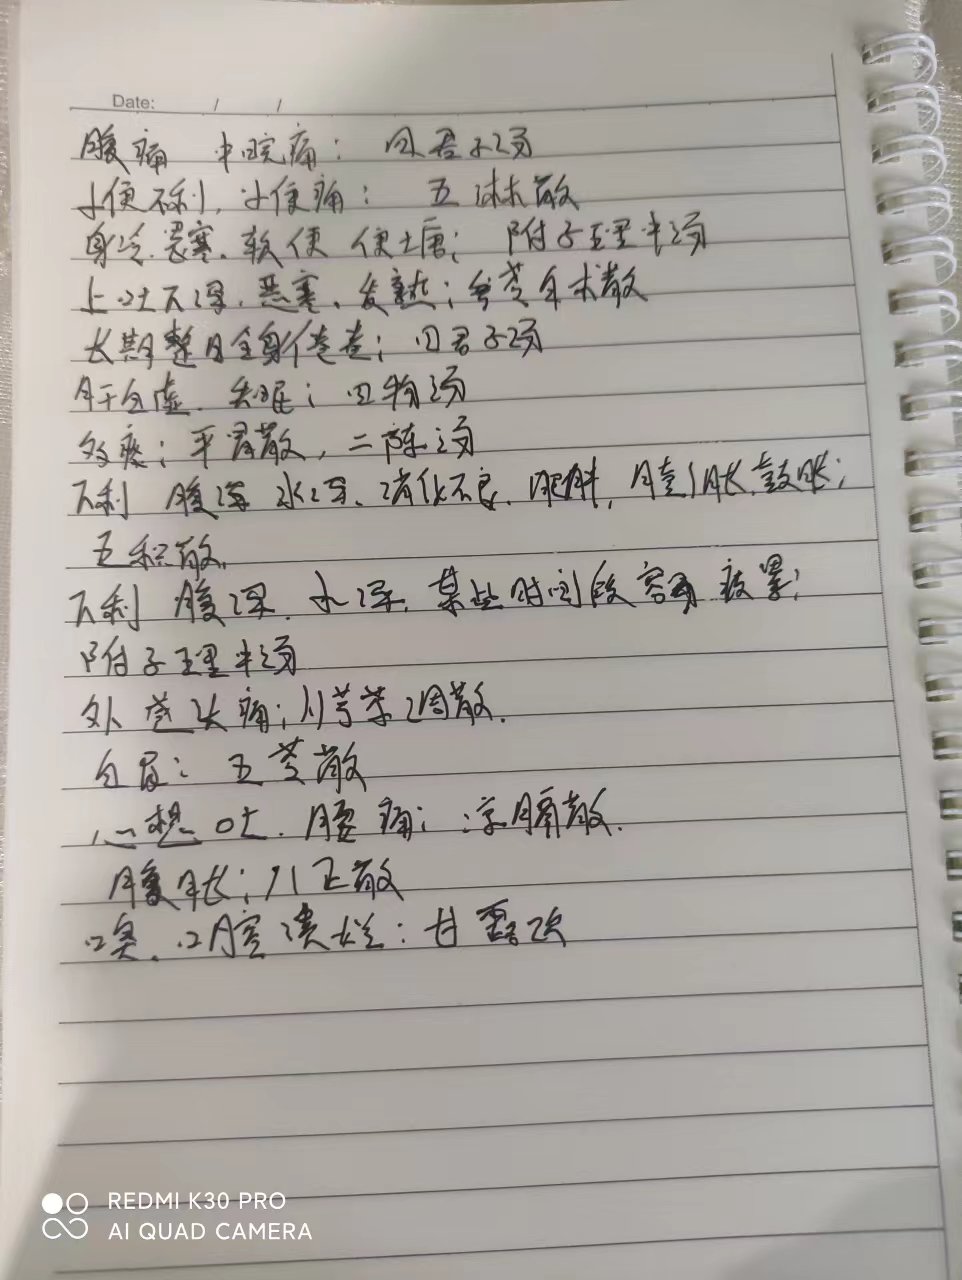 Date: / /
腹痛 中脘痛： 四君子汤
小便不利，小便痛： 五淋散
身冷.畏寒、软便 便溏； 附子理中汤
上吐下泻、恶寒、发热；参苓白术散
长期整日全身倦怠；四君子汤
肝血虚、失眠；四物汤
多痰；平胃散，二陈汤
下利 腹泻 水泻、消化不良、肥胖，膨胀、鼓胀；
五积散、
下利 腹泻、水泻、某些时间段容易疲累；
附子理中汤
外感头痛；川芎茶调散.
白尿： 五苓散
心想吐、腰痛；凉膈散.
腹胀；八正散
口臭、口腔溃烂：甘露饮
REDMI K30 PRO
AI QUAD CAMERA